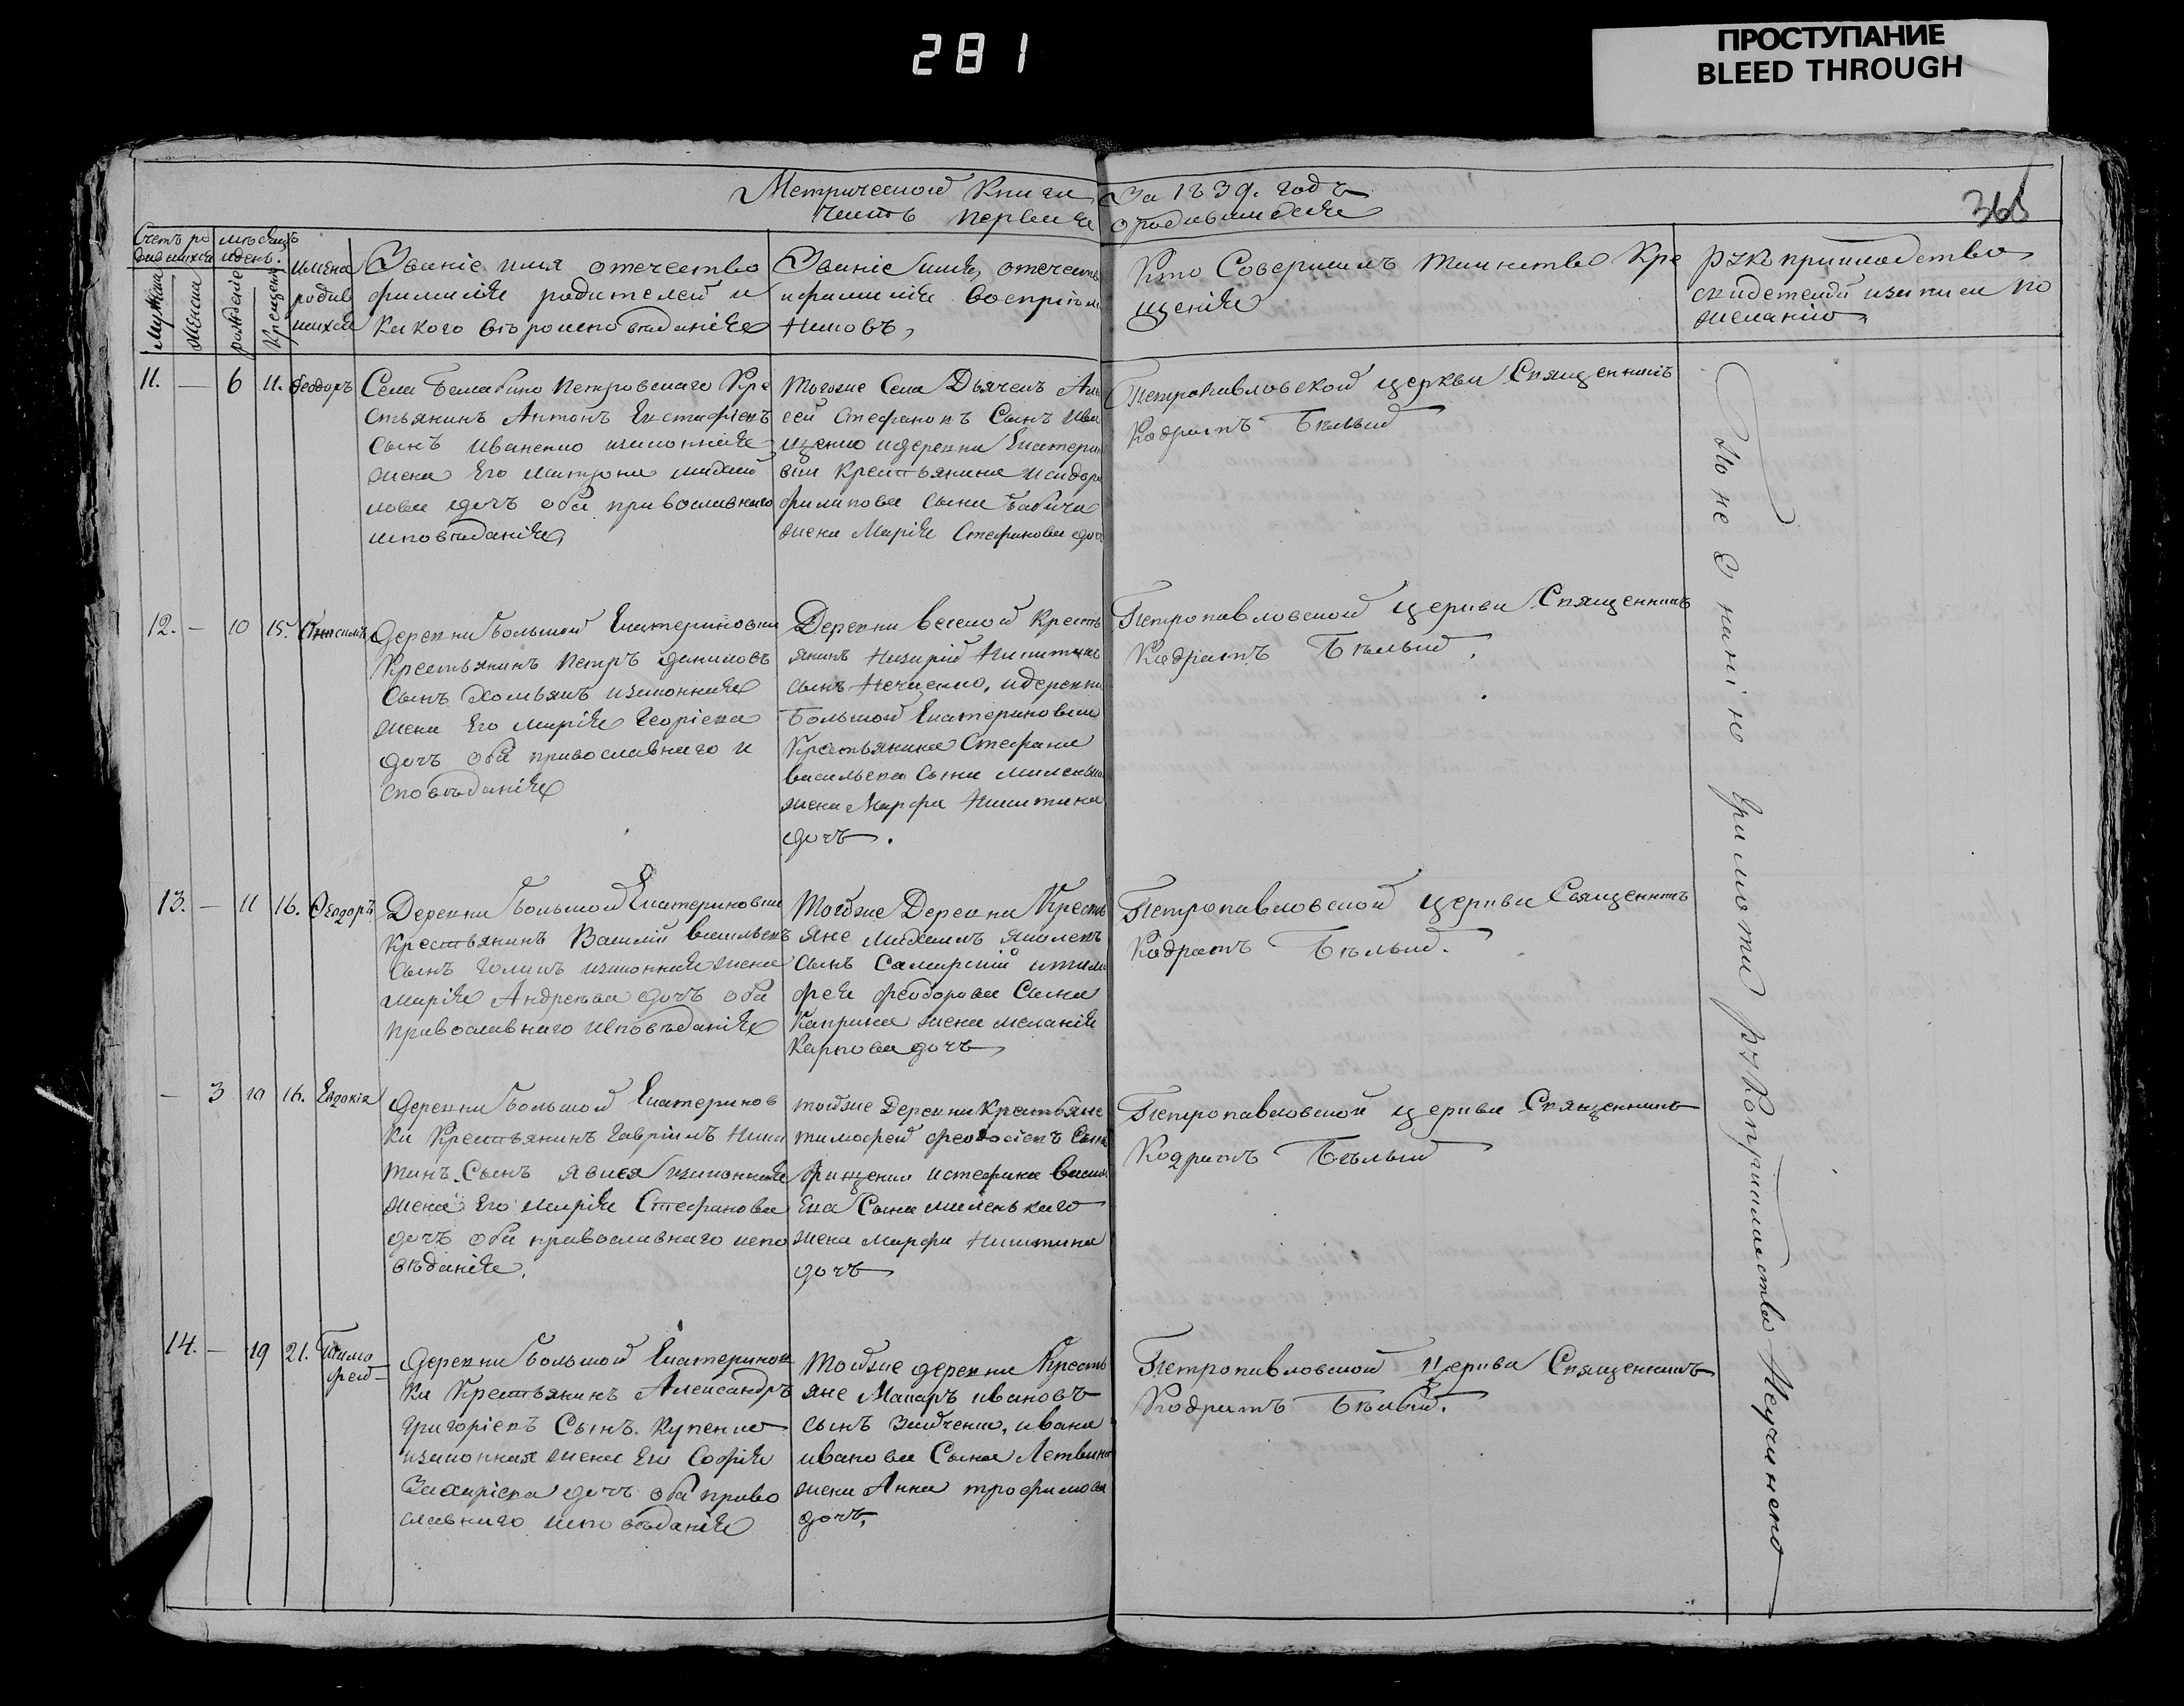 281
ПРОСТУПАНИЕ
BLEED THROUGH
Метрической Книги За 1839. годъ
часть первая о родившихся
368
Счетъ ро
дившихся
Мужеска
Женска
мѣсяцъ
и день.
рожденіе
Крещеніе
имена
родив
шихся
Званіе имя отечество
фамилія родителей и
какого вѣроисповѣданія
Званіе имя, отечеств
и фамилія воспріем
никовъ,
Кто Совершилъ таинство Кре
щенія
рукоприкладство
свидетелей записи по
желанію
11. — 6 11. Феодоръ
Села Петровскаго Кре
стьянинъ Антонъ Евстафіевъ
сынъ Иваненко изаконная
жена Его Матрона михай
лова дочъ оба православнаго
исповѣданія,
тогоже Села Дьячекъ
сей Стефановъ Сынъ Ива
щенко идеревни Екатерин
вки Крестьянина Исидора
филипова Сына бабича
жена Марія Стефанова доч
Петропавловской церкви Священникъ
Кодратъ Бѣлый
12. — 10 15. Анисимъ
деревни большой Екатериновки
Крестьянинъ Петръ даниловъ
Сынъ Хомъякъ изаконная
жена Его марія Георгіева
дочъ оба православнаго и
сповѣданія
Деревни веселой Кресть
янинъ Назарій Никитинъ
сынъ Нечаенко, идеревни
Большой Екатериновки
Крестьянина Стефана
васильева Сына
жена Марфа Никитина
дочъ.
Петропавловской церкви Священникъ
Кодратъ Бѣлый.
13. — 11 16. Феодоръ
Деревни большой Екатериновки
Крестьянинъ Василій васильевъ
Сынъ Голикъ изаконная жена
марія Андреева дочъ оба
православнаго исповѣданія
Тойже Деревни Кресть
яне михаилъ яковлевъ
Сынъ Самарскій итимо
фея феодорова Сына
Каприна жена меланія
Карпова дочъ
Петропавловской церкви Священникъ
Кодратъ Бѣлый.
— 3 10 16. Евдокія
деревни большой Екатеринов
ки Крестьянинъ Гавріилъ Ники
тинъ Сынъ изаконная
жена Его марія Стефанова
дочъ оба православнаго испо
вѣданія.
тойже Деревни Крестьяне
тимофей феодосіевъ Сынъ
истефана васил
ева Сына маленькаго
жена марфа Никитина
дочъ
Петропавловской церкви Священникъ
Кодратъ Бѣлый
14. — 19 21. Тимо
фей
деревни большой Екатеринов
ки Крестьянинъ Александръ
григоріевъ Сынъ. Купенко
изаконная жена Его Софія
Захаріева дочъ оба право
славнаго исповѣданія
Тойже деревни Кресть
яне Макаръ ивановъ
сынъ ивана
иванова Сына Летвина
жена Анна трофимова
дочъ,
Петропавловской Церкви Священникъ
Кодратъ Бѣлый.
По незнанію грамоты рукоприкладства Неучинено